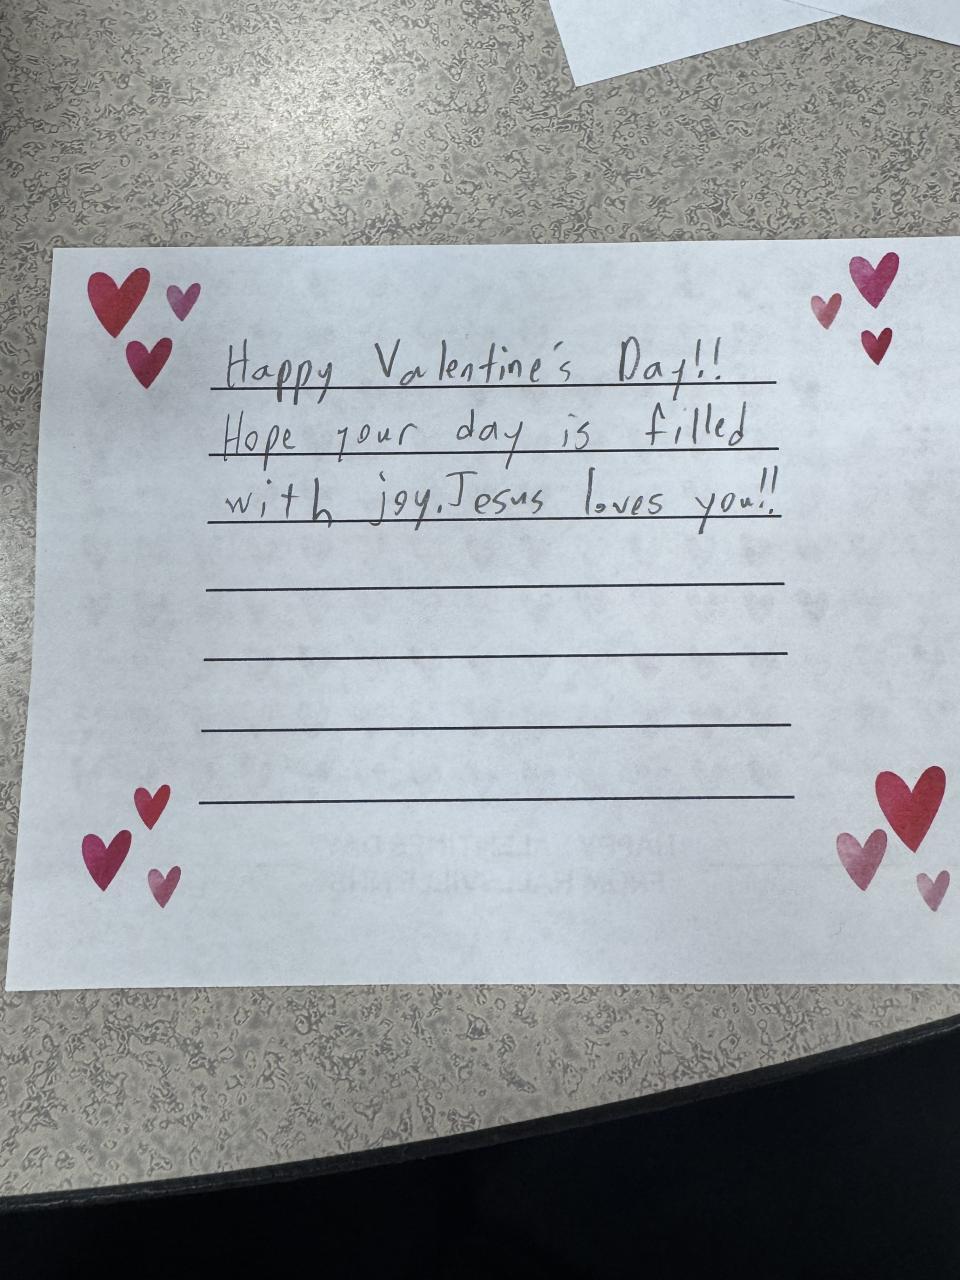 Happy Valentine's Day!!
Hope your day is filled
with joy. Jesus loves you!!